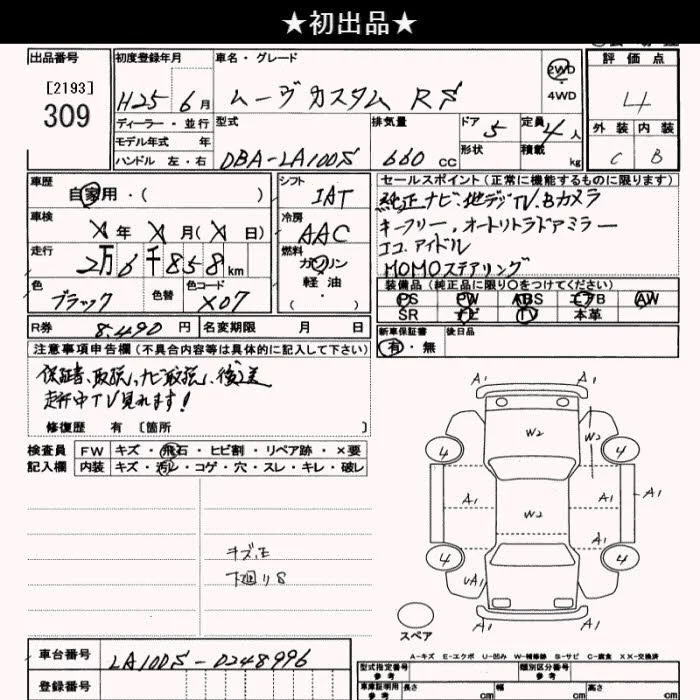 ★初出品★
出品番号
[2193]
309
初度登録年月
H25 6月
車名・グレード
ムーヴカスタム RS
2WD
4WD
評価点
4
外装 内装
C B
ディーラー・並行
モデル年式 年
ハンドル 左・右
型式
DBA-LA100S
排気量
660 CC
ドア 5
形状
定員 4人
積載 kg
車歴
自家用・( )
車検
X年 X月(X日)
走行
2万6千858km
色
ブラック
色替
色コード
X07
シフト
IAT
冷房
AAC
燃料
ガソリン
軽油
( )
セールスポイント (正常に機能するものに限ります)
純正ナビ、地デジTV、Bカメラ
キーフリー、オートリトラドアミラー
エコアイドル
MOMOステアリング
装備品 (純正品に限り○をつけてください)
PS PW ABS エアB AW
SR ナビ TV 本革
R券 8,490円
名変期限 月 日
新車保証書
有・無
後日品
注意事項申告欄 (不具合内容等は具体的に記入して下さい)
保証書、取説、ナビ取説、後送
走行中TV見れます!
修復歴 有 [箇所 ]
検査員
記入欄
FW キズ・飛石・ヒビ割・リペア跡・×要
内装 キズ・汚レ・コゲ・穴・スレ・キレ・破レ
キズ、E
下廻りS
A1 A1
W2 W2
4 4
A1 A1 A1 A1
W2
4 4
UA1
A1 A1
スペア
A-キズ E-エクボ U-凹み W-補修跡 S-サビ C-腐食 XX-交換済
車台番号
LA100S-0248996
登録番号
型式指定番号
参考
類別区分番号
参考
車庫証明用
参考
長さ cm
幅 cm
高さ cm